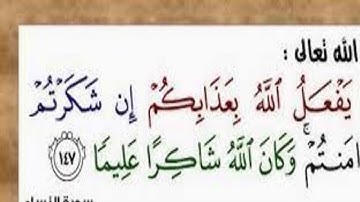 الله تعالى :
يَفْعَلُ ٱللَّهُ بِعَذَابِكُمْ إِن شَكَرْتُمْ
امَنتُمْ ۚ وَكَانَ ٱللَّهُ شَاكِرًا عَلِيمًا ١٤٧